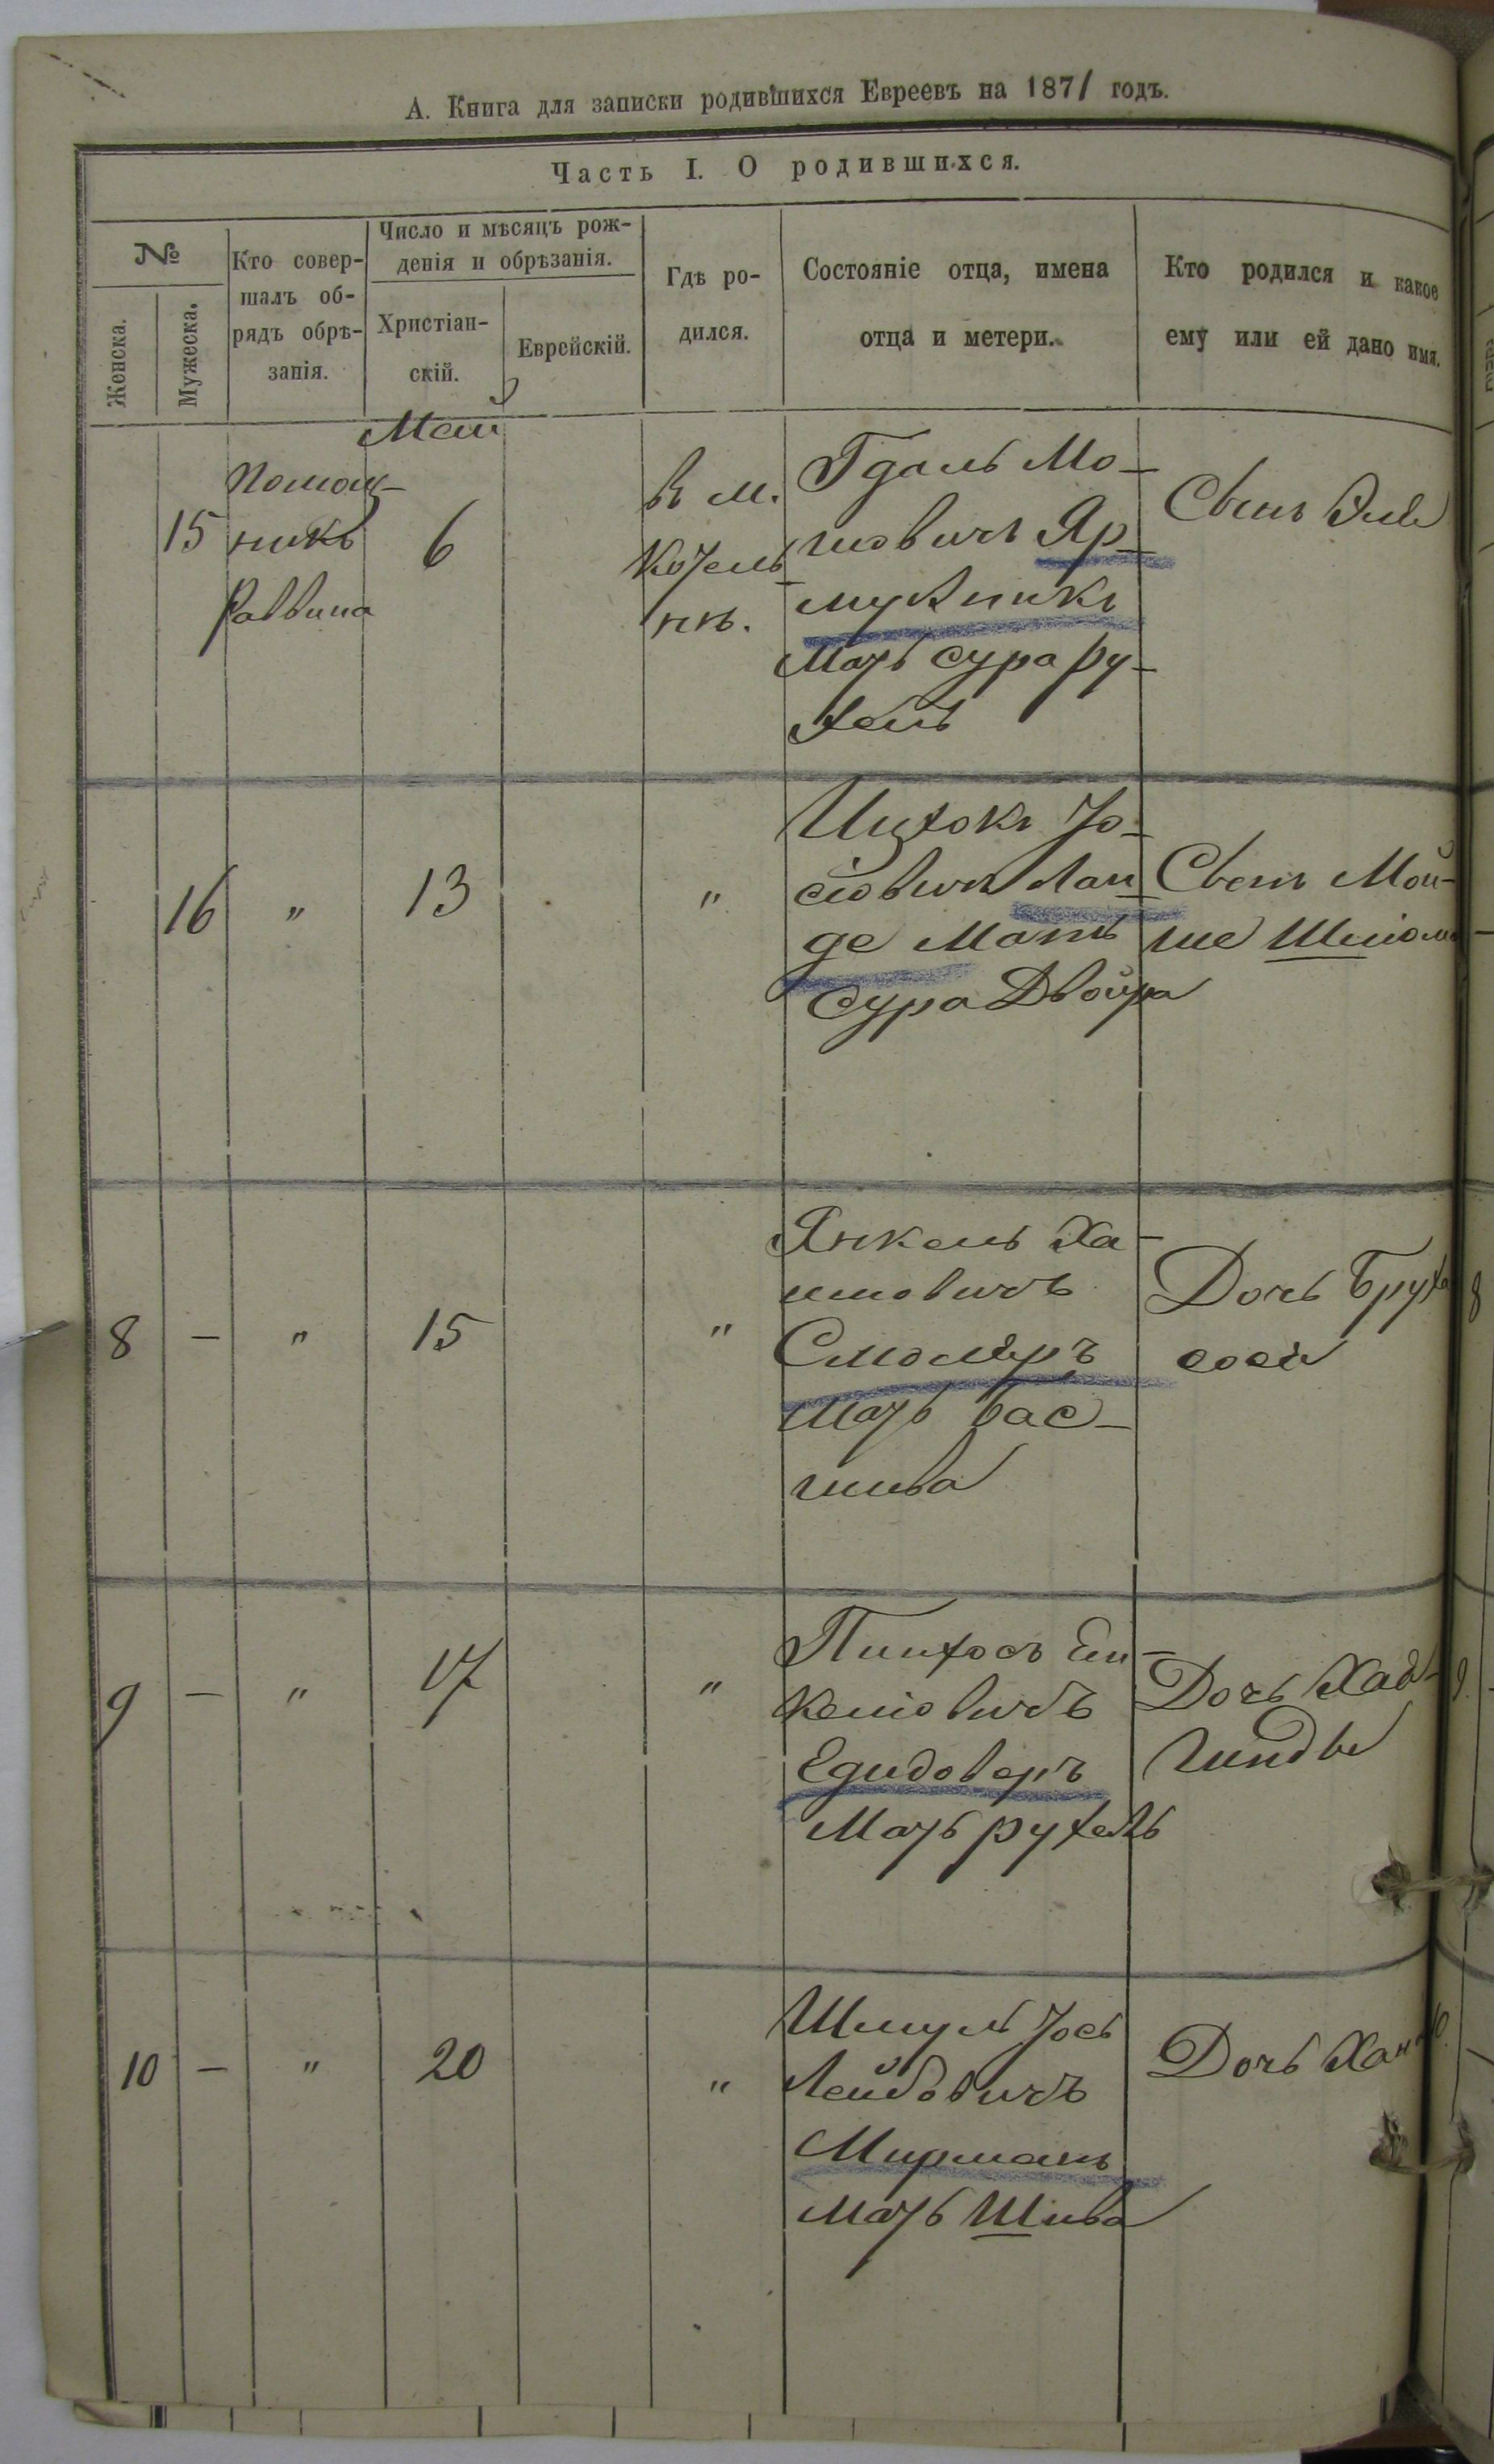 А. Книга для записки родившихся Евреевъ на 1871 годъ.
Часть I. О родившихся.
№
Женска.
Мужеска.
Кто совер-
шалъ об-
рядъ обрѣ-
занія.
Число и мѣсяцъ рож-
денія и обрѣзанія.
Христіан-
скій.
Еврейскій.
Гдѣ ро-
дился.
Состояніе отца, имена
отца и метери.
Кто родился и какое
ему или ей дано имя.
Май
15
Помощ-
никъ
Раввина
6
В м.
Котель
нѣ.
Гдаль Мо-
шовичъ Яр-
мулникъ
Мать Сура Ру-
хель
Сынъ
16
"
13
"
Ицхокъ Іо-
сіовичъ Лан-
де Мать
Сура Двойра
Сынъ Мой-
ше Шліома
8
-
"
15
"
Янкель Ха-
имовичъ
Смоляръ
Мать Бас-
шива
Дочь Бруха
Сося
9
-
"
17
"
Пинхосъ Ен-
келіовичъ
Едидоверъ
Мать Рухель
Дочь
Гинды
10
-
"
20
"
Шмуль Іось
Лейбовичъ
Мирманъ
Мать Шива
Дочь